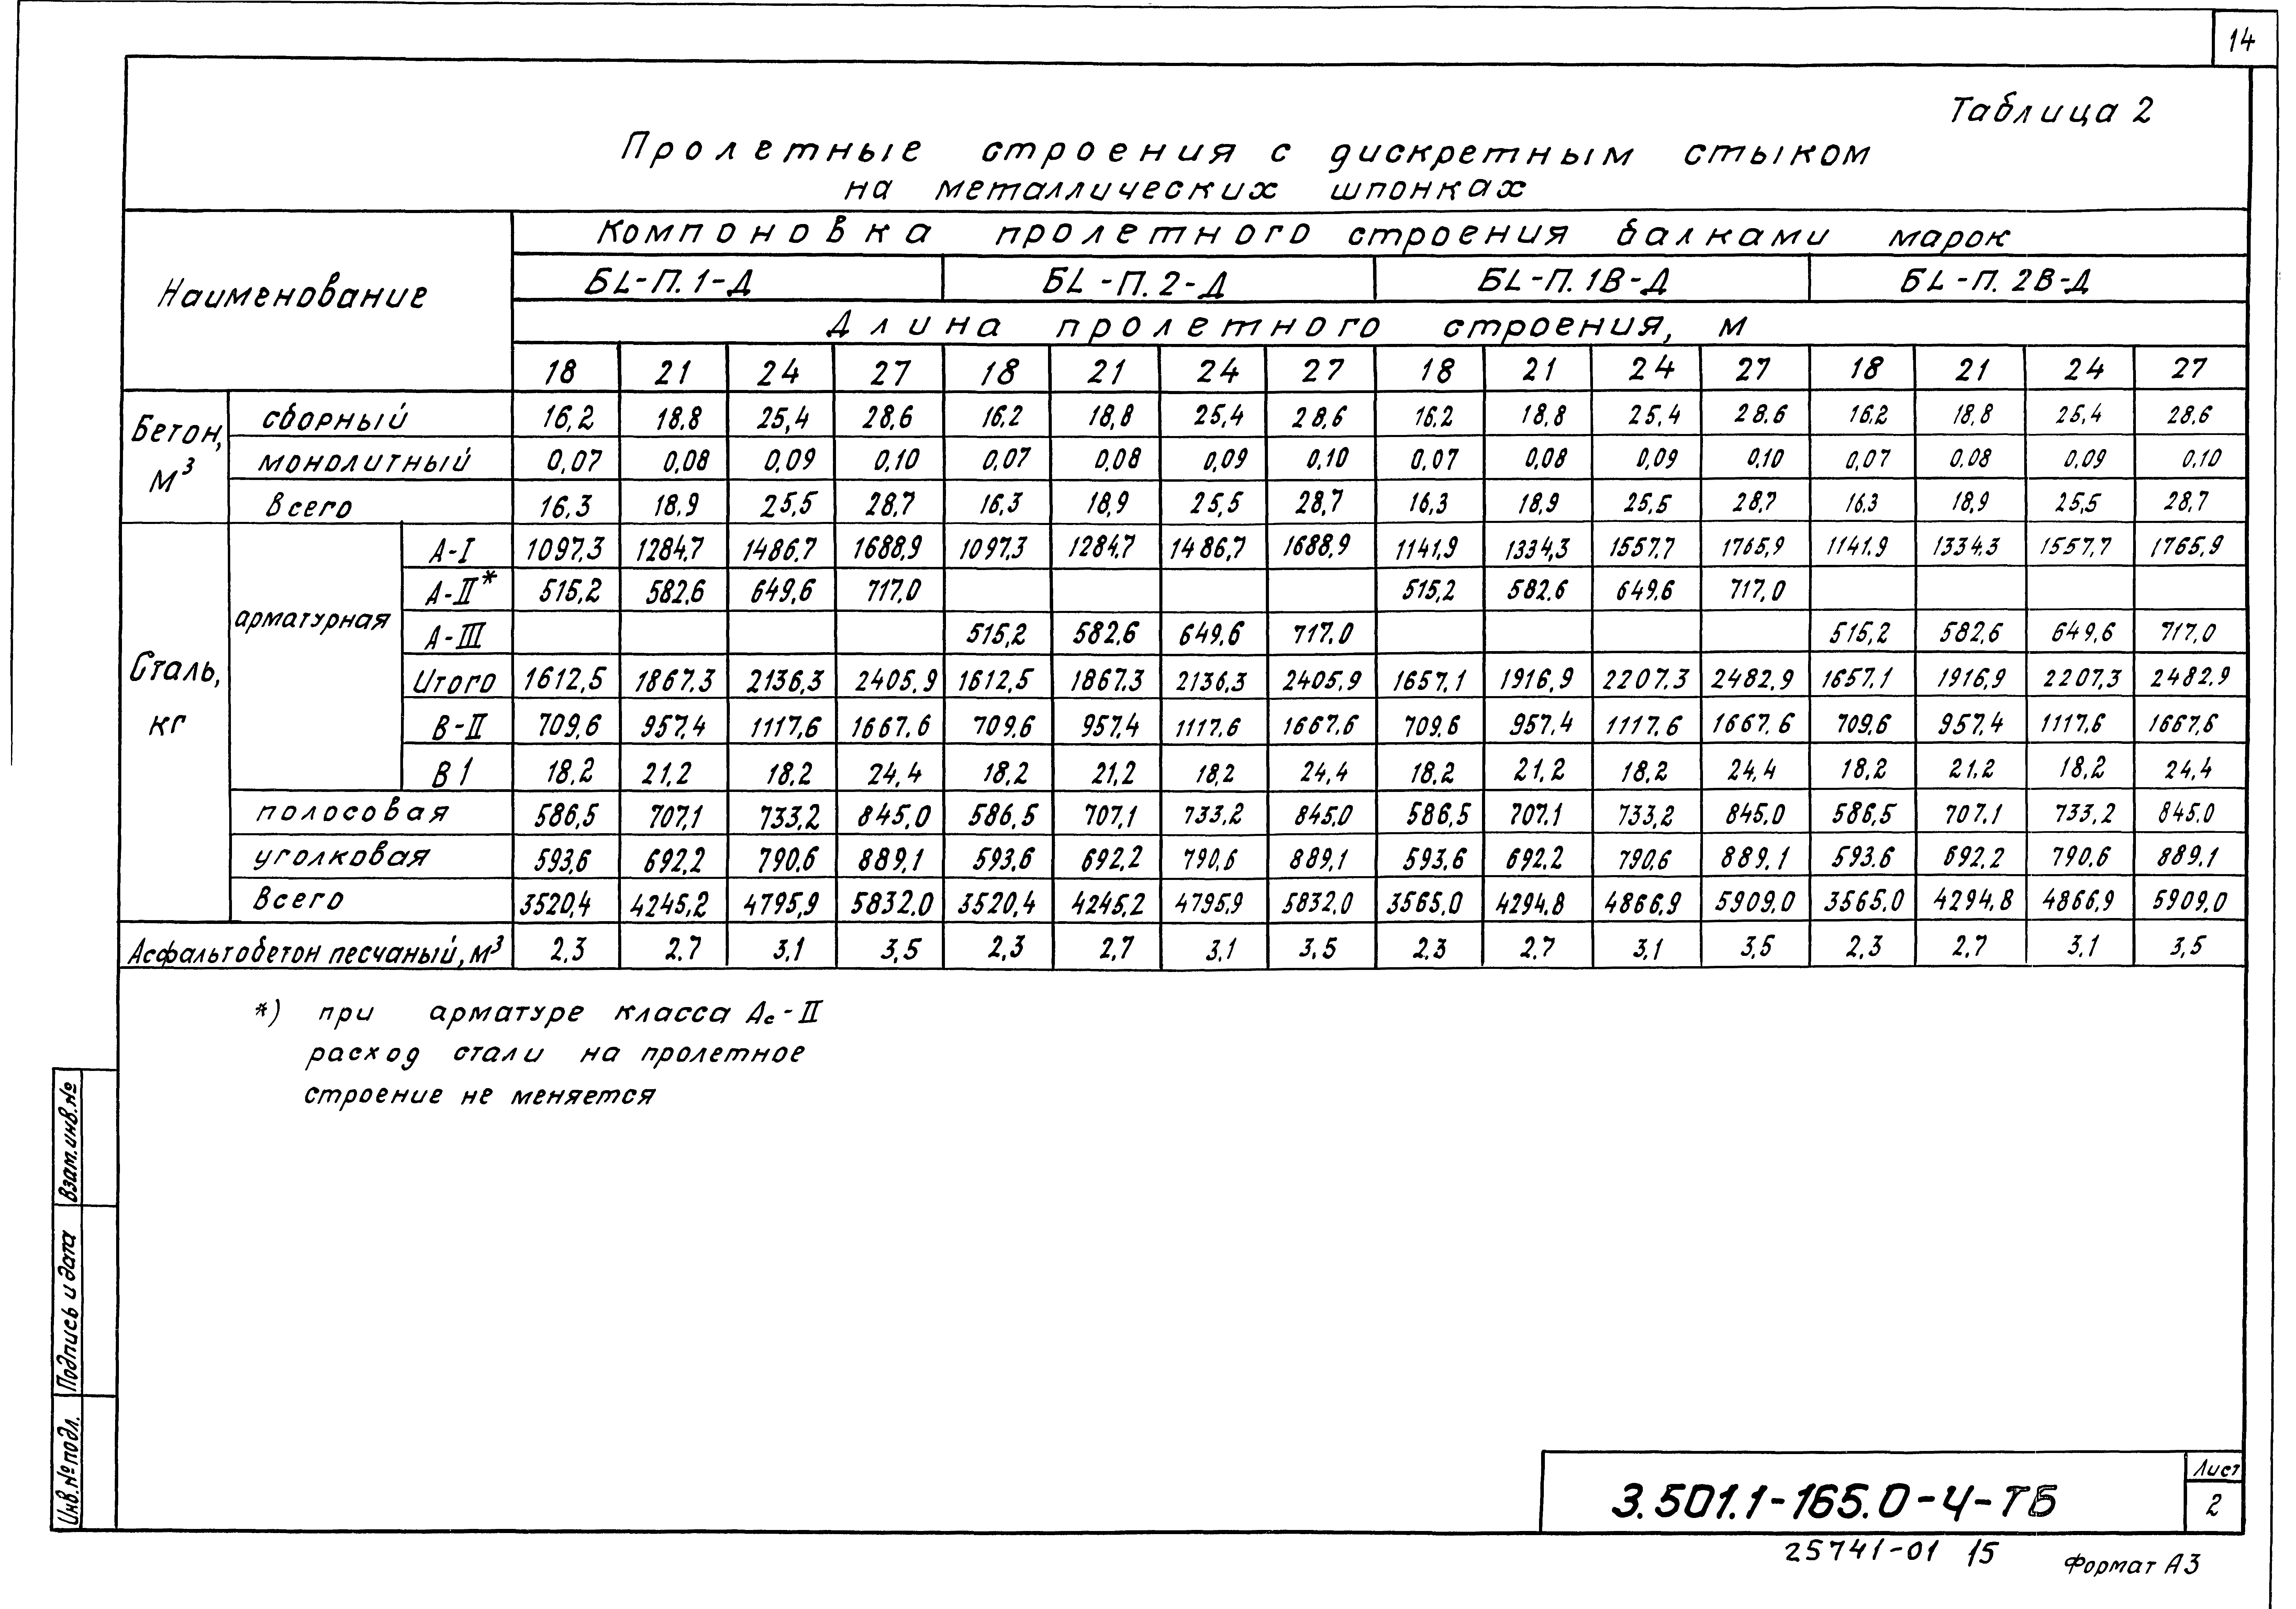 14
Таблица 2
Пролетные строения с дискретным стыком
на металлических шпонках
Наименование
Компоновка пролетного строения балками марок
БL-П.1-Д БL-П.2-Д БL-П.1В-Д БL-П.2В-Д
Длина пролетного строения, м
18 21 24 27 18 21 24 27 18 21 24 27 18 21 24 27
Бетон, м³
сборный 16,2 18.8 25,4 28,6 16,2 18,8 25,4 28,6 16,2 18,8 25,4 28.6 16,2 18,8 25,4 28,6
монолитный 0,07 0,08 0,09 0,10 0,07 0,08 0,09 0,10 0,07 0,08 0,09 0,10 0,07 0.08 0,09 0,10
Всего 16,3 18,9 25,5 28,7 16,3 18,9 25,5 28,7 16,3 18,9 25,5 28,7 16,3 18,9 25,5 28,7
Сталь, кг
арматурная
А-I 1097,3 1284,7 1486,7 1688,9 1097,3 1284,7 1486,7 1688,9 1141,9 1334,3 1557,7 1765,9 1141,9 1334,3 1557,7 1765,9
А-II* 515,2 582,6 649,6 717,0 515,2 582,6 649,6 717,0
А-III 515,2 582,6 649,6 717,0 515,2 582,6 649,6 717,0
Итого 1612,5 1867,3 2136,3 2405,9 1612,5 1867,3 2136,3 2405,9 1657,1 1916,9 2207,3 2482,9 1657,1 1916,9 2207,3 2482,9
В-II 709,6 957,4 1117,6 1667,6 709,6 957,4 1117,6 1667,6 709,6 957,4 1117,6 1667,6 709,6 957,4 1117,6 1667,6
В1 18,2 21,2 18,2 24,4 18,2 21,2 18,2 24,4 18,2 21,2 18,2 24,4 18,2 21,2 18,2 24,4
полосовая 586,5 707,1 733,2 845,0 586,5 707,1 733,2 845,0 586,5 707,1 733,2 845,0 586,5 707,1 733,2 845,0
уголковая 593,6 692,2 790,6 889,1 593,6 692,2 790,6 889,1 593,6 692,2 790,6 889,1 593,6 692,2 790,6 889,1
Всего 3520,4 4245,2 4795,9 5832,0 3520,4 4245,2 4795,9 5832,0 3565,0 4294,8 4866,9 5909,0 3565,0 4294,8 4866,9 5909,0
Асфальтобетон песчаный, м³ 2,3 2,7 3,1 3,5 2,3 2,7 3,1 3,5 2,3 2,7 3,1 3,5 2,3 2,7 3,1 3,5
*) при арматуре класса Ас-II
расход стали на пролетное
строение не меняется
Взам.инв.№
Подпись и дата
Инв.№подл.
3.501.1-165.0-4-ТБ
Лист
2
25741-01 15
Формат А3